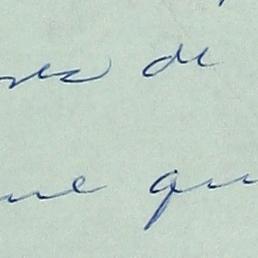 res de
ue qu